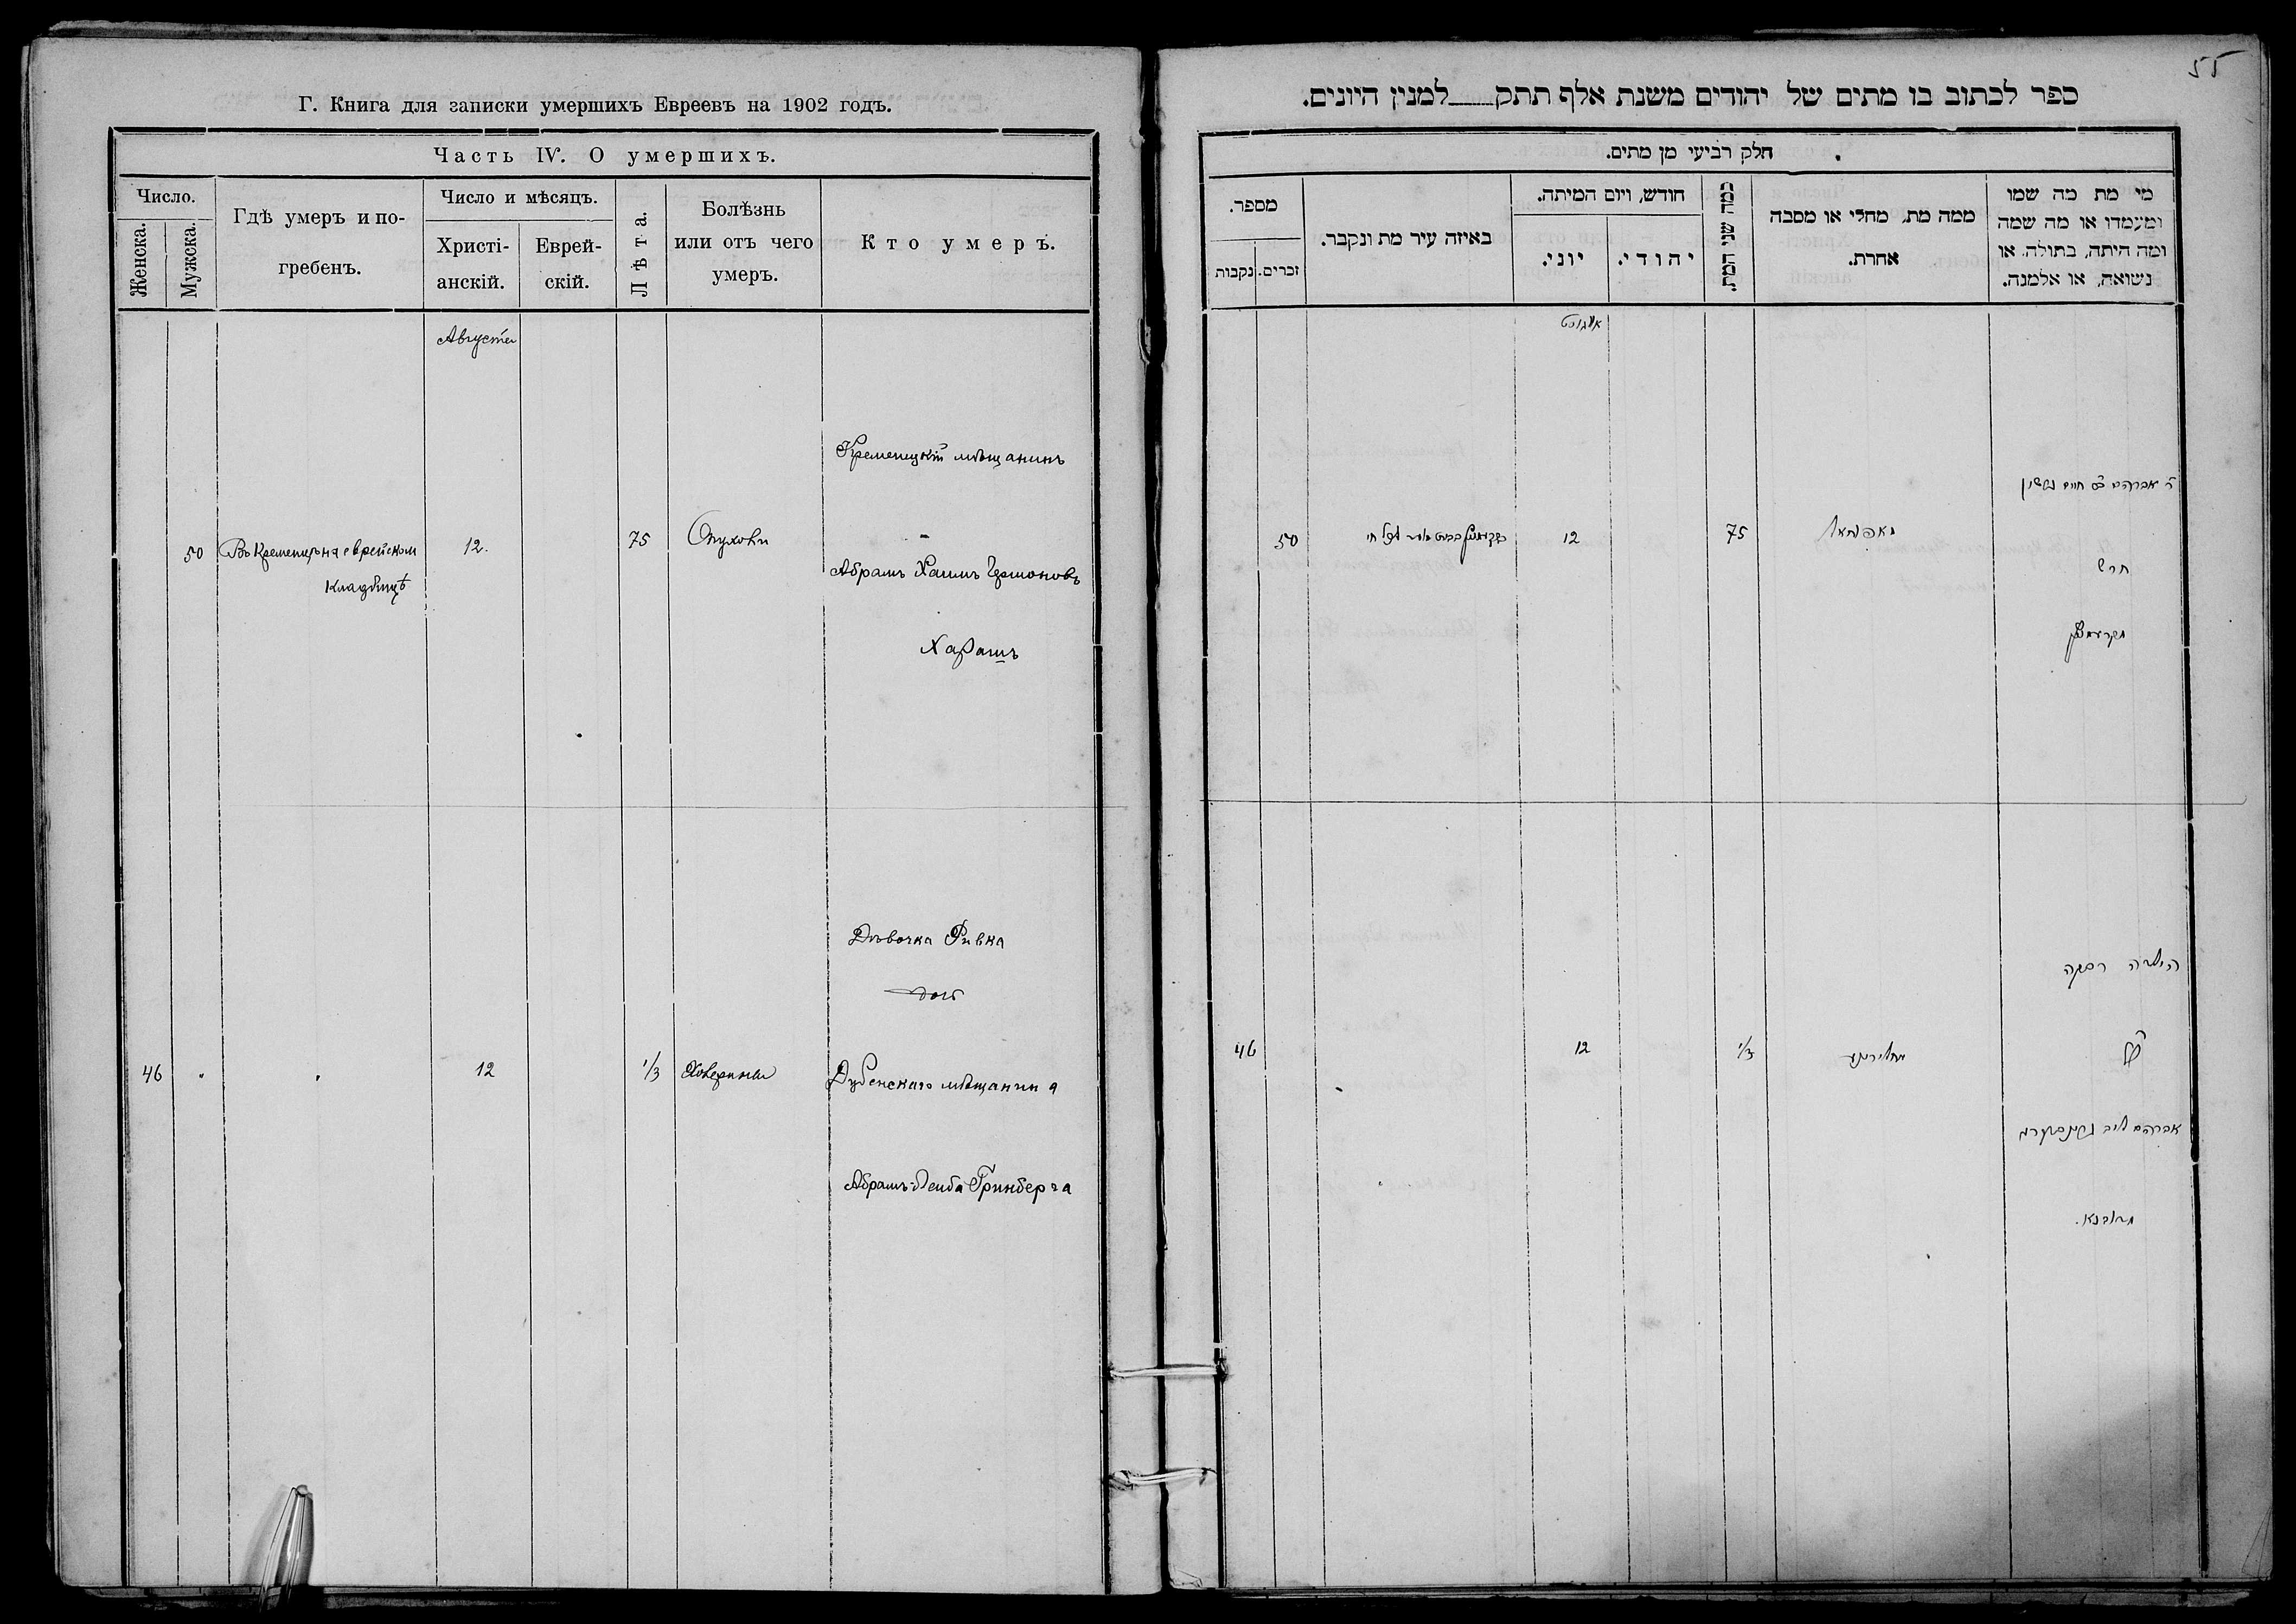 Г. Книга для записки умершихъ Евреевъ на 1902 годъ.
Часть IV. О умершихъ.
Число.
Женска.
Мужска.
Гдѣ умеръ и по-
гребенъ.
Число и мѣсяцъ.
Христі-
анскій.
Еврей-
скій.
Лѣта.
Болѣзнь
или отъ чего
умеръ.
Кто умеръ.
Августа
Кременецкій мѣщанинъ
50 Въ Кременцѣ на еврейском 12. 75 Опухоли
кладбищѣ
Абрамъ Хаимъ
Харашъ
Дѣвочка Ривка
дочь
46 12 1/3
Дубенскаго мѣщанина
Абрамъ-Лейба Гринберга
55
ספר לכתוב בו מתים של יהודים משנת אלף תתק למנין היונים.
חלק רביעי מן מתים.
מספר.
נקבות
זכרים.
באיזה עיר מת ונקבר.
חודש, ויום המיתה.
יוני.
יהודי.
כמה שני המת.
ממה מת, מחלי או מסבה
אחרת.
מי מת מה שמו
ומעמדו או מה שמה
ומה היתה, בתולה, או
נשואה, או אלמנה.
אויגוסט
ר אברהם חיים
50 12 75
חרש
הילדה רבקה
46 12 1/3
אברהם ליב
מדובנא.